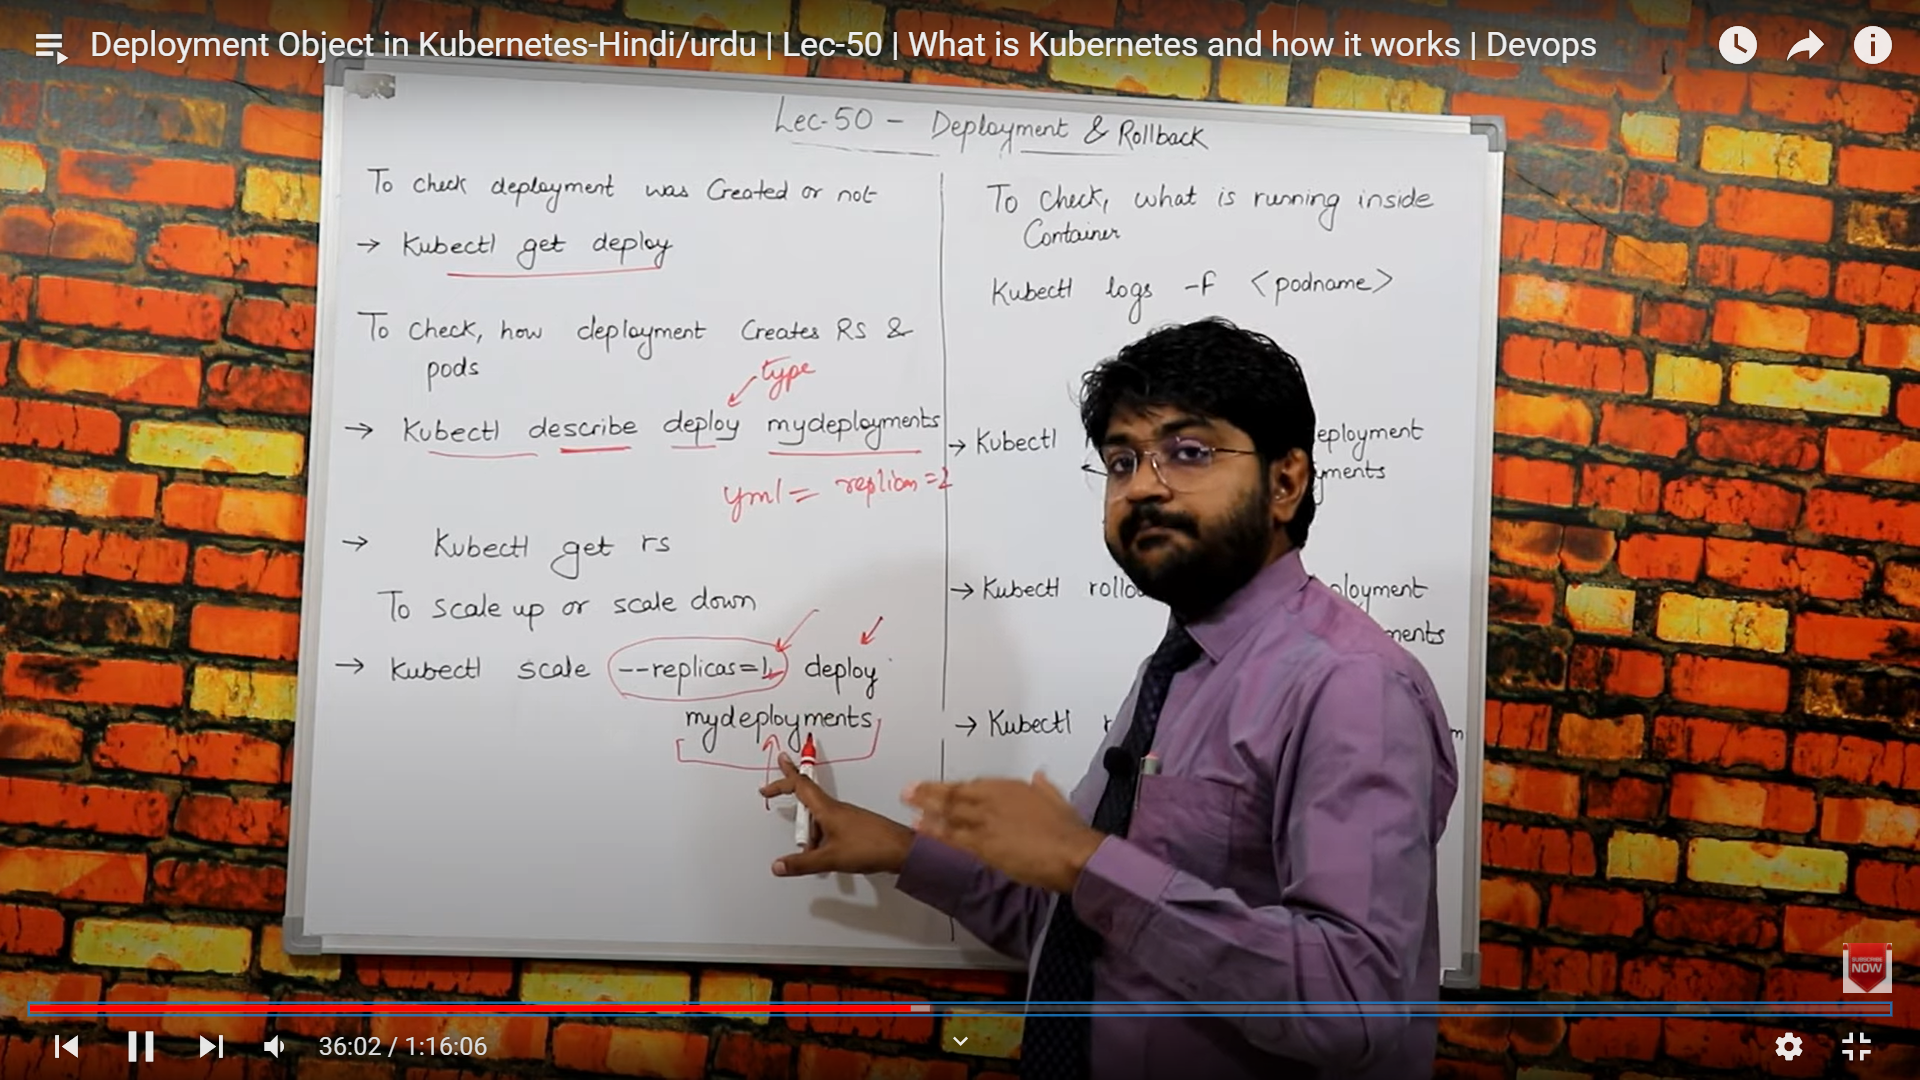 Deployment Object in Kubernetes-Hindi/urdu | Lec-50 | What is Kubernetes and how it works | Devops
Lec-50 - Deployment & Rollback
To check deployment was Created or not
→ Kubectl get deploy
To check, how deployment Creates RS &
pods
type
→ Kubectl describe deploy mydeployments
yml =
→ Kubectl get rs
To scale up or scale down
→ Kubectl scale --replicas=1 deploy
mydeployments
To check, what is running inside
Container
Kubectl logs -f <podname>
→ Kubectl
eployment
yments
→ Kubectl rollo
ployment
ments
→ Kubectl r
m
SUBSCRIBE
NOW
36:02 / 1:16:06